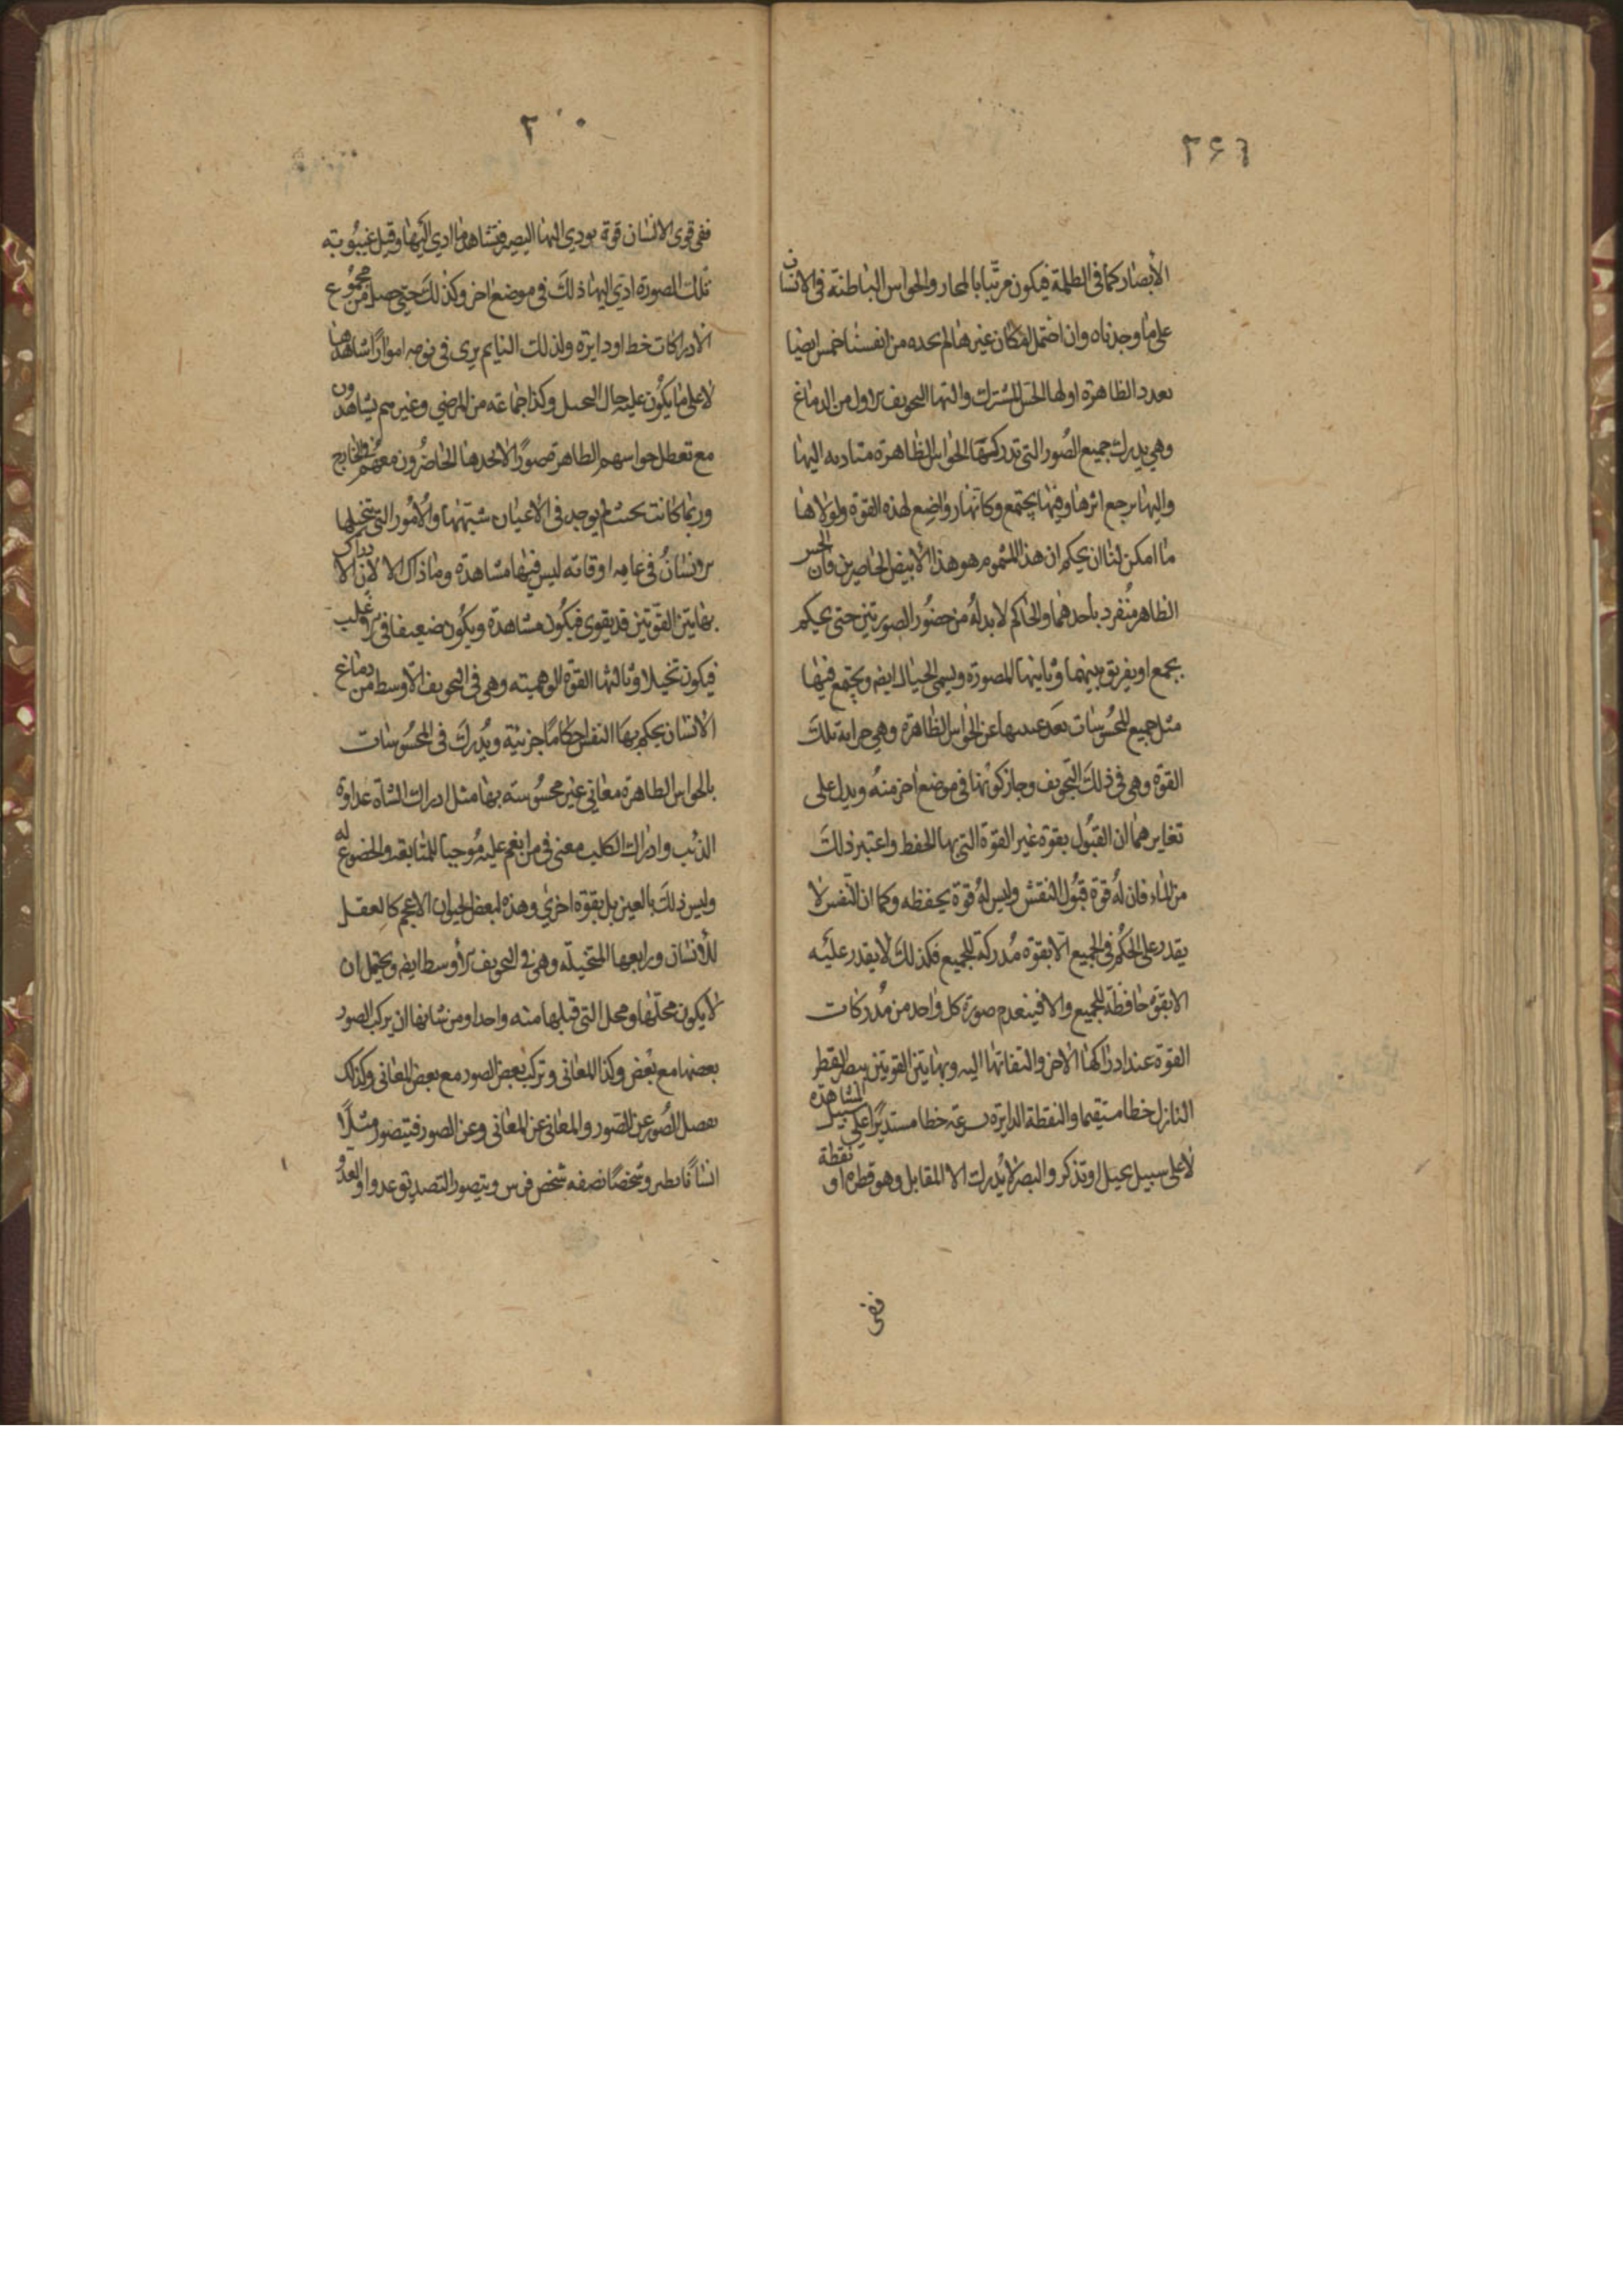 ٢٤٦
الأبصار كما في الظلمة فيكون مرتبا بالمحار والحواس الباطنة في الانسان
على ما وجدناه وان احتمل امكان غيرها لم نجده من انفسنا خمس ايضا
بعدد الظاهرة اولها الحس المشترك والتها التجويف الاول من الدماغ
وهي يدرك جميع الصُور التي تدركها الحواس الظاهرة متاديه اليها
واليها يرجع اثرها وفيها يجتمع وكانها رواضع لهذه القوة ولولاها
ما امكن لنا ان يحكم ان هذا المشموم هو هذا الابيض الحاضرين فان الحس
الظاهر مُنفرد باحدهما والحاكم لابد لهُ من حضُور الصورتين حتى يحكم
بجمع او بفريق بينهما وثانيتها المصورة ويسمى الخيال ايضا ويجتمع فيها
مثل جميع المحسُوسات بعد غيبها عن الحواس الظاهرة وهي خزانة تلك
القوة وهي في ذلك التجويف وجاز كونها في موضع اخر منهُ ويدل على
تغايرهما ان القبُول بقوة غير القوة التي بها الحفظ واعتبر ذلك
من الماء فان لهُ قوة قبُول النقش وليس لهُ قوة يحفظه وكما ان النفس لا
يقدر على الحكم في الجميع الا بقوة مُدركة للجميع فكذلك لا يقدر عليه
الا بقوة حافظة للجميع والا فينعدم صورة كل واحد من مُدركات
القوة عند ادراكها الاخر والتفاتها اليه وبهاتين القوتين يبصر القطر
النازل خطا مستقيما والنقطة الدايرة بسرعة خطا مستديرًا على سبيل المشاهدة
لا على سبيل تخيل او تذكر والبصر لا يُدرك الا المقابل وهو قطره او نقطة
ففي
٢٠
ففي قوى الانسان قوة يودي اليها البصر فتشاهد ما ادي اليها وقبل غيبُوبته
تلك الصورة ادي اليها ذلك في موضع اخر وكذلك حتى حصل من مجموع
الادراكات خط او دايرة ولذلك النايم يرى في نومه امورًا شاهدها
لا على ما يكُون عليه حال التخيل وكذا جماعة من المرضي وغيرهم يشاهدون
مع تعطل حواسهم الظاهرة صورًا لا يجدها الحاضرُون معهُم في الخارج
وربما كانت بحيث لم يوجد في الاعيان شبهها والأمُور التي يتخيلها
الانسانُ في عامة اوقاته ليس فيها مشاهدة وما ذاك الا لان الادراك
بهاتين القوتين قد يقوى فيكُون مشاهدة ويكُون ضعيفا في الاغلب
فيكون تخيلا وثالثها القوة الوهمية وهي في التجويف الاوسط من دماغ
الانسان يحكم بها النفس احكامًا جزئية ويُدرك في المحسُوسات
بالحواس الظاهرة معاني غير محسُوسة بها مثل ادراك الشاة عداوة
الذئب وادراك الكلب معنى في من انعم عليه مُوجبا للمتابعة والخضوع له
وليس ذلك بالعين بل بقوة اخرى وهذه لبعض الحيوان الاعجم كالعقل
للأنسان ورابعها المتخيلة وهي في التجويف الأوسط ايضا ويحتمل ان
لا يكون محلها ومحل التي قبلها منه واحدا ومن شانها ان يركب الصور
بعضها مع بعض وكذا المعاني وتركب بعض الصور مع بعض المعاني وكذلك
تفصل الصُور عن الصور والمعاني عن المعاني وعن الصور فيتصور مثلاً
انسانًا يطير وشخصًا نصفه شخص فرس ويتصور الصديق عدوا والعدو